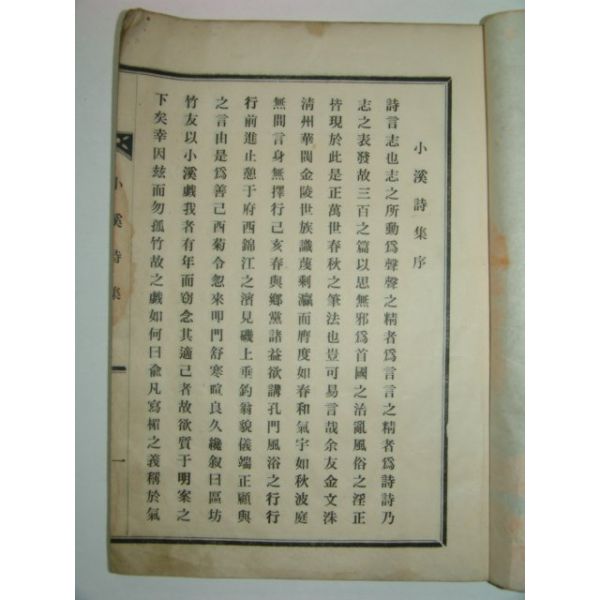 小溪詩集序
詩言志也志之所動爲聲聲之精者爲言言之精者爲詩詩乃
志之表發故三百之篇以思無邪爲首國之治亂風俗之淫正
皆現於此是正萬世春秋之筆法也豈可易言哉余友金文洙
清州華閥金陵世族識蔑剩瀛而膺度如春和氣宇如秋波庭
無間言身無擇行己亥春與鄉黨諸益欲講孔門風浴之行行
行前進止憩于府西錦江之濱見磯上垂釣翁貌儀端正顧與
之言由是爲善己酉菊令忽來叩門舒寒暄良久纔叙曰區坊
竹友以小溪戱我者有年而窃念其適己者故欲質于明案之
下矣幸因玆而勿孤竹故之戱如何曰兪凡寫楣之義稱於氣
小溪詩集
一